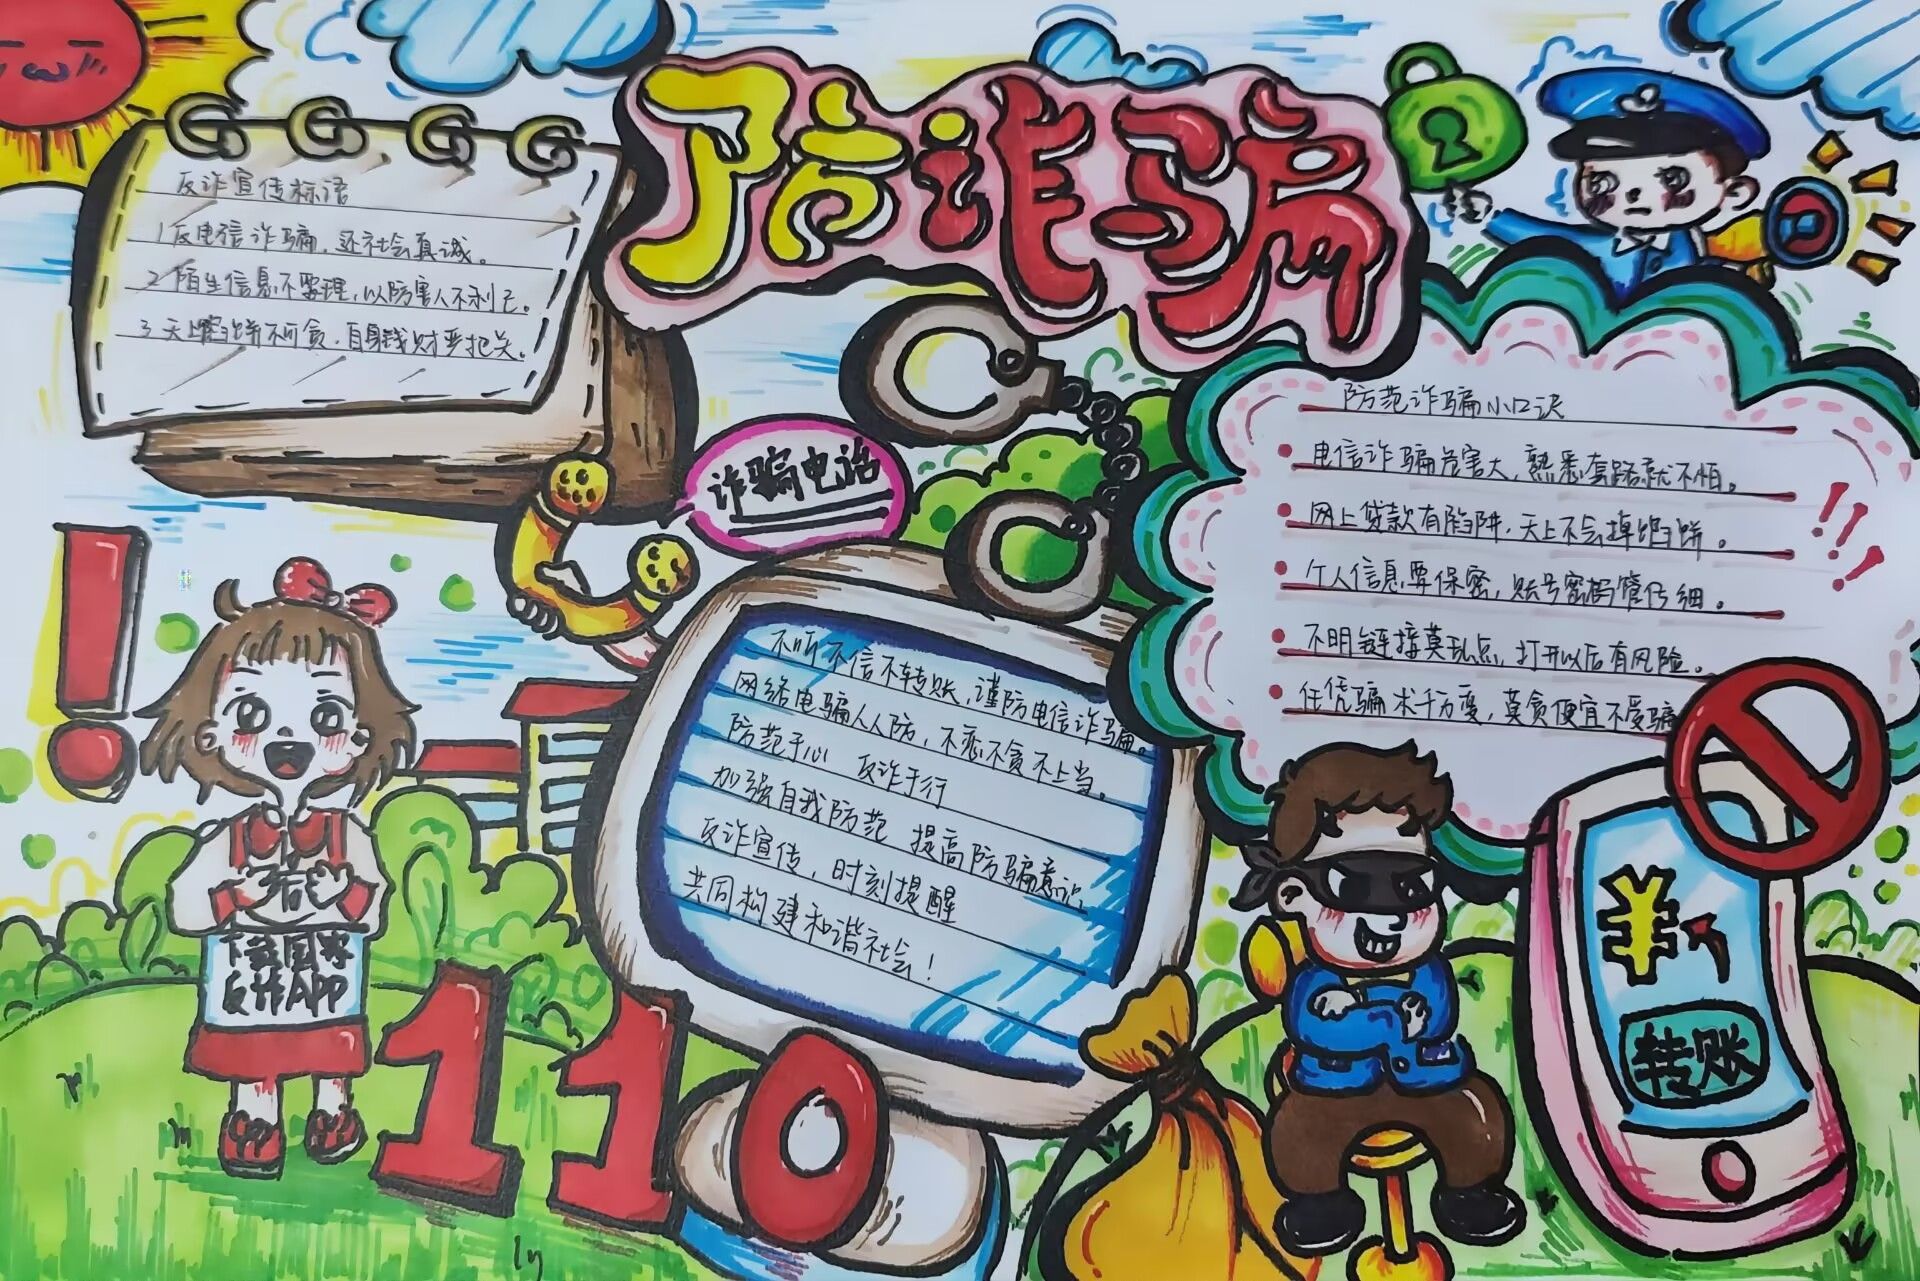 防诈骗
反诈宣传标语
1反电信诈骗，还社会真诚。
2陌生信息不要理，以防害人不利己。
3天上馅饼不可贪，自身钱财严把关。
诈骗电话
防范诈骗小口识
电信诈骗危害大，熟悉套路就不怕。
网上贷款有陷阱，天上不会掉馅饼。
个人信息要保密，账号密码管仔细。
不明链接莫乱点，打开以后有风险。
任凭骗术千万变，莫贪便宜不受骗
不听不信不转账，谨防电信诈骗。
网络电骗人人防，不恋不贪不上当。
防范于心 反诈于行
加强自我防范 提高防骗意识
反诈宣传，时刻提醒
共同构建和谐社会！
下载国家
反诈APP
110
¥
转账